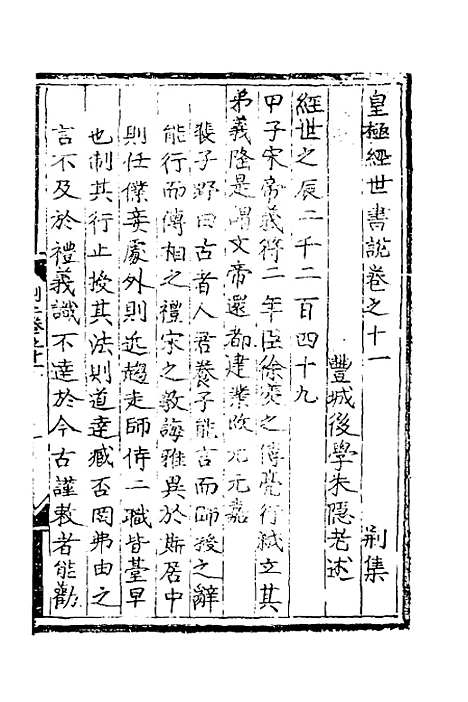 皇極經世書說卷之十一　荊集
豐城後學朱隱老述
經世之辰二千二百四十九
甲子宋帝義符二年臣徐羨之傅亮行弒立其
弟義隆是謂文帝還都建業改元元嘉
裴子野曰古者人君養子能言而師授之辭
能行而傅相之禮宋之教誨雅異於斯居中
則任僕妾處外則近趨走師侍二職皆臺皁
也制其行止授其法則道達臧否罔弗由之
言不及於禮義識不達於今古謹敕者能勸